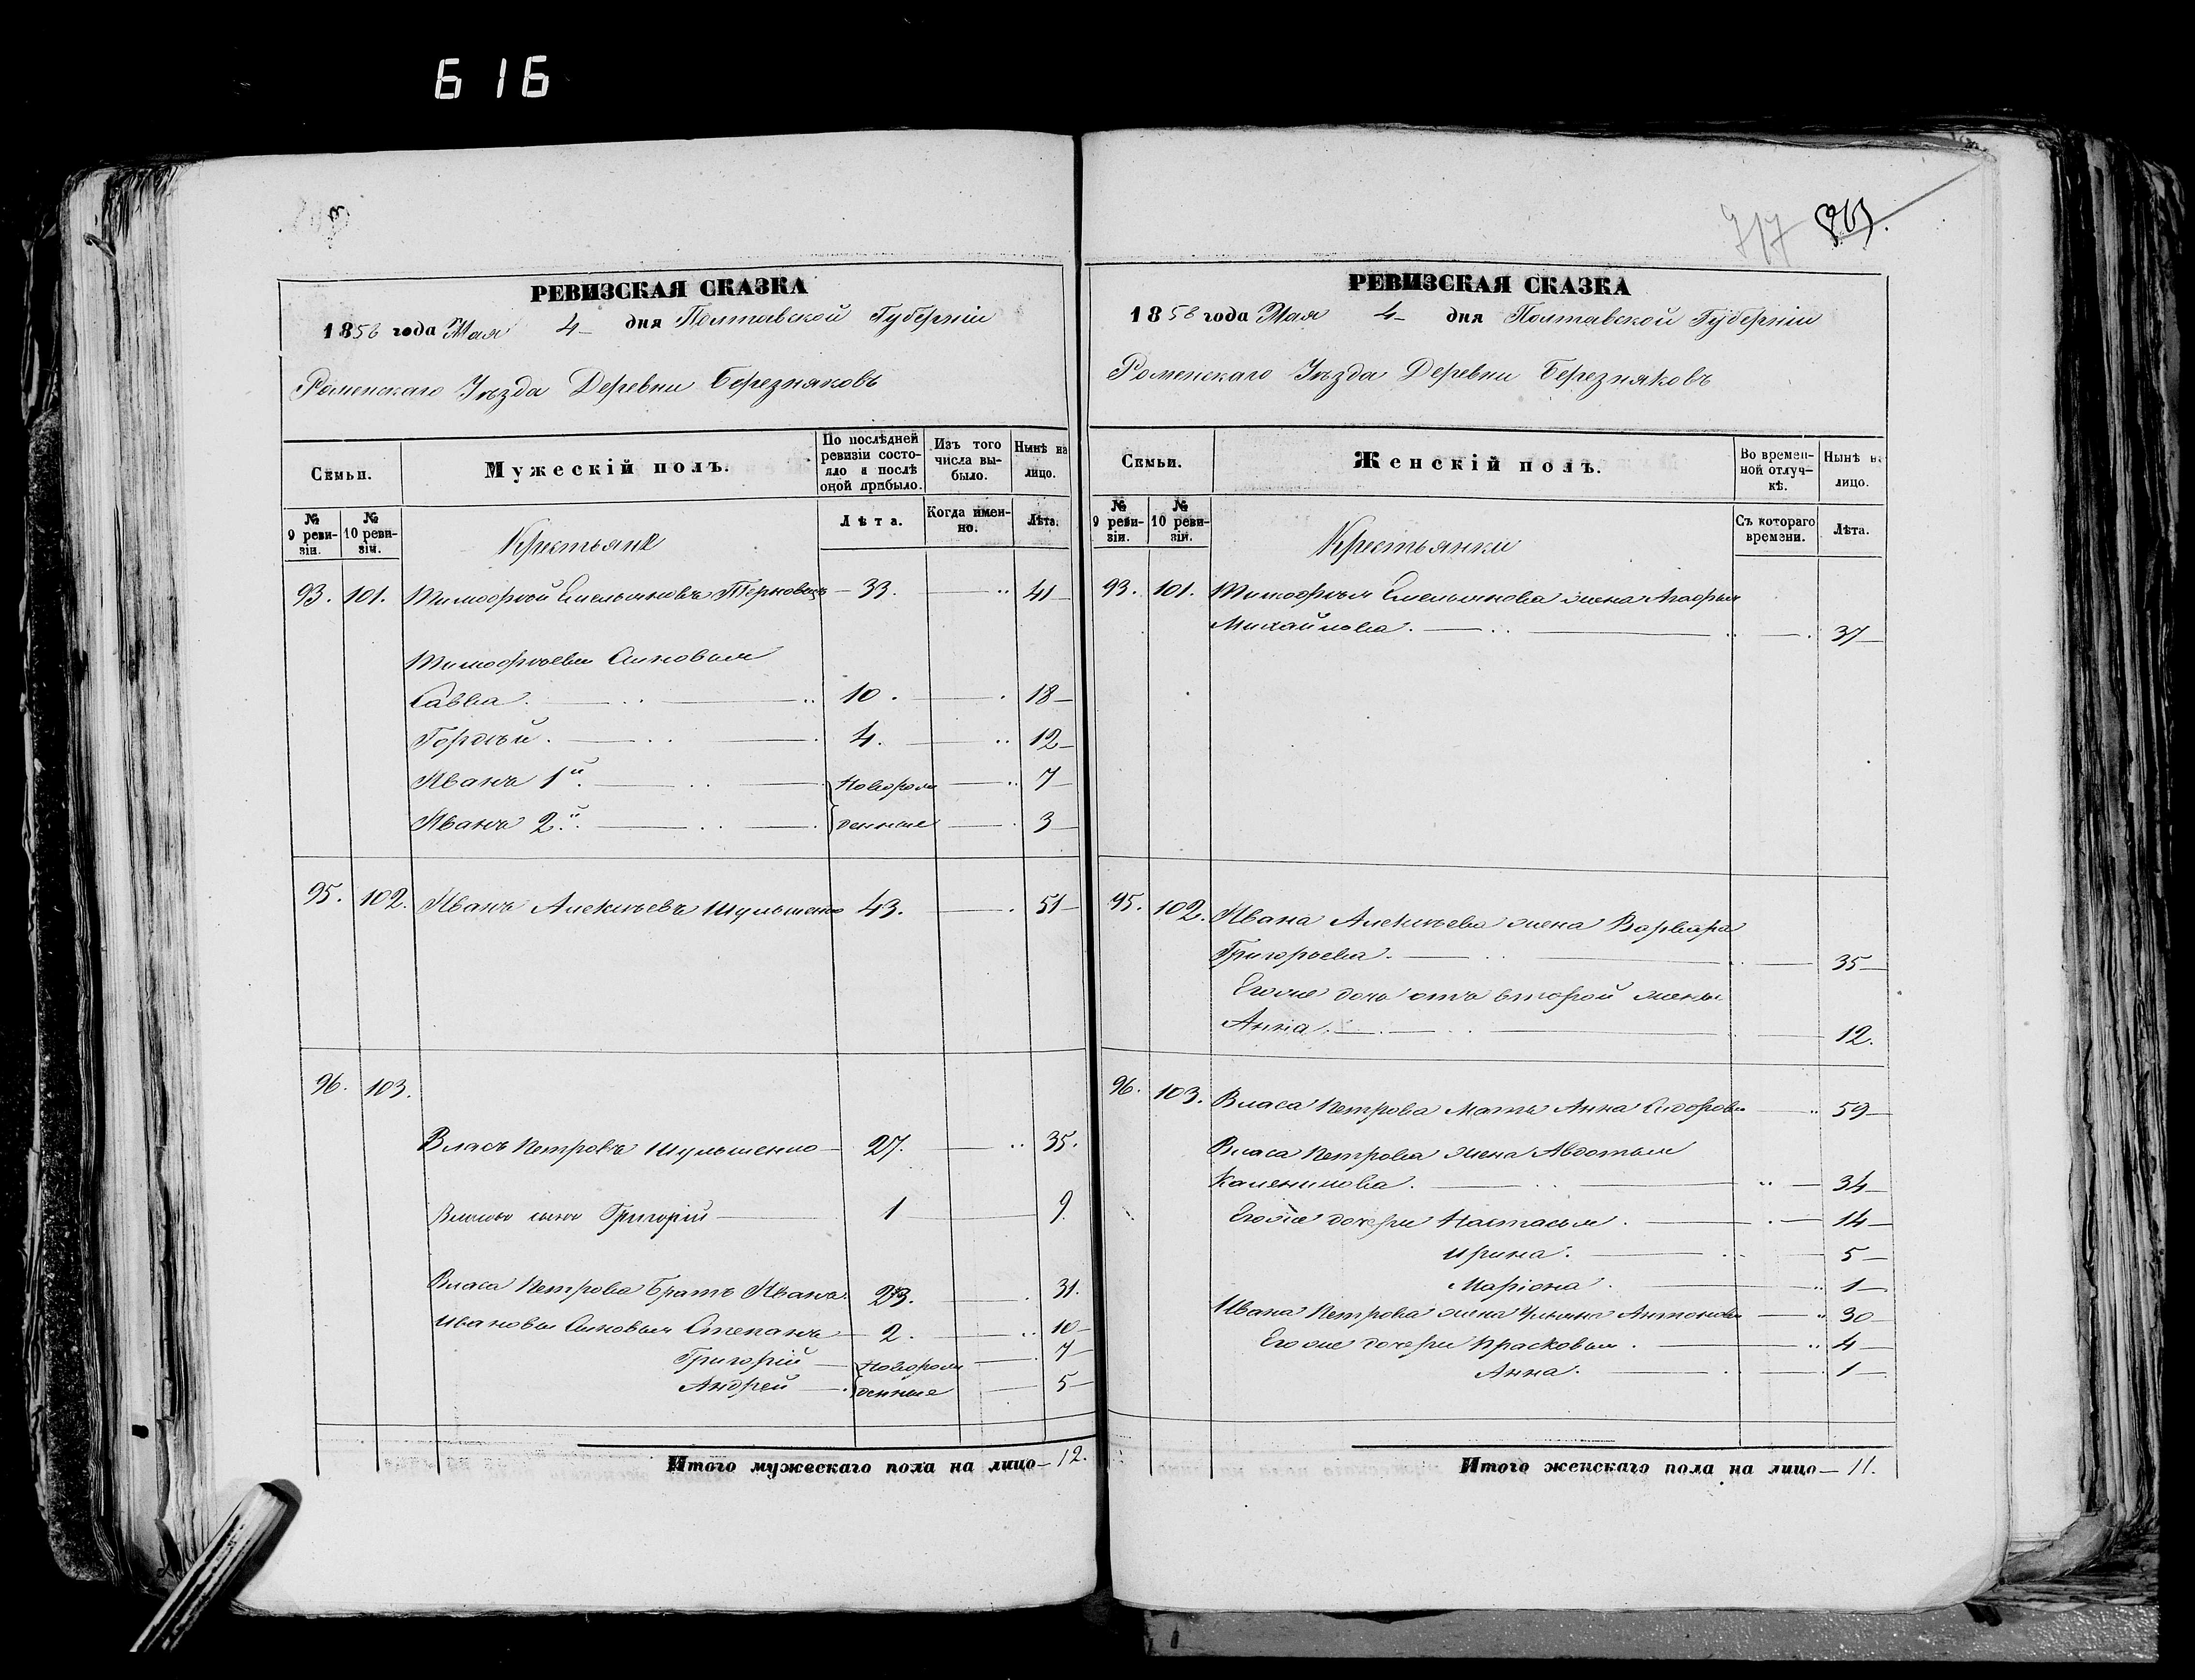 616
717
РЕВИЗСКАЯ СКАЗКА
1858 года Мая 4 дня Полтавской Губерніи
Роменскаго Уѣзда Деревни Березняковъ
Семьи. Мужескій полъ. По послѣдней ревизіи состояло и послѣ оной прибыло. Изъ того числа выбыло. Ныне на лицо.
№ 9 ревизіи. № 10 ревизіи. Крестьяне Лѣта. Когда именно. Лѣта.
93. 101. Тимофѣй Емельяновъ 33. 41
Тимофѣевы Сыновья
Савва. 10. 18
Гордѣй. 4. 12
Иванъ 1й. Новорож 7
Иванъ 2й. денные 3
95. 102. Иванъ Алексѣевъ Шульженко 43. 51
96. 103.
Власъ Петровъ Шульженко 27. 35.
Власовъ сынъ Григорій 1 9
Власа Петрова Братъ Иванъ 23. 31.
Ивановы Сыновья Степанъ 2. 10
Григорій Новорож 7
Андрей денные 5
Итого мужескаго пола на лицо 12.
РЕВИЗСКАЯ СКАЗКА
1858 года Мая 4 дня Полтавской Губерніи
Роменскаго Уѣзда Деревни Березняковъ
Семьи. Женскій полъ. Во временной отлучкѣ. Нынѣ на лицо.
№ 9 ревизіи. № 10 ревизіи. Крестьянки Съ котораго времени. Лѣта.
93. 101. Тимофѣя Емельянова жена Агафья
Михайлова. 37
95. 102. Ивана Алексѣева жена Варвара
Григорьева. 35
Его же дочь отъ второй жены
Анна. 12.
96. 103. Власа Петрова Мать Анна Сидорова 59
Власа Петрова жена Авдотья
Каленикова. 34
Его же дочери Настасья. 14
Ирина. 5
Маріона. 1
Ивана Петрова жена Ульяна Антонова 30
Его же дочери Прасковья. 4
Анна. 1
Итого женскаго пола на лицо 11.